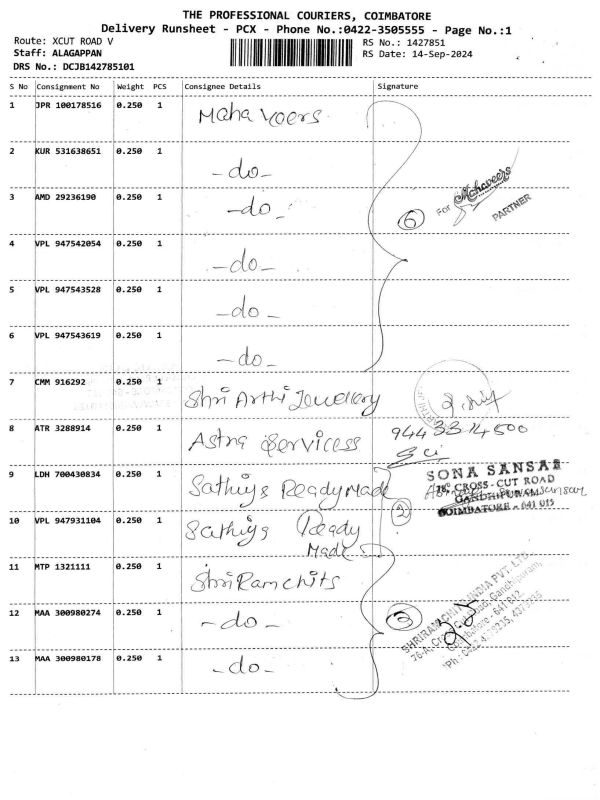 THE PROFESSIONAL COURIERS, COIMBATORE
Delivery Runsheet - PCX - Phone No.:0422-3505555 - Page No.:1
Route: XCUT ROAD V
RS No.: 1427851
Staff: ALAGAPPAN
RS Date: 14-Sep-2024
DRS No.: DCJB142785101
S No Consignment No Weight PCS Consignee Details Signature
1 JPR 100178516 0.250 1 Maha Veers
2 KUR 531638651 0.250 1 -do-
3 AMD 29236190 0.250 1 -do-
6 For Mahaveers
PARTNER
4 VPL 947542054 0.250 1 -do-
5 VPL 947543528 0.250 1 -do-
6 VPL 947543619 0.250 1 -do-
7 CMM 916292 0.250 1 Shri Arthi Jewellery
8 ATR 3288914 0.250 1 Astra Servicess 9443314500
9 LDH 700430834 0.250 1 Sathiys Ready Made
SONA SANSAR
CROSS-CUT ROAD
GANDHIPURAM
COIMBATORE - 641 015
2
10 VPL 947931104 0.250 1 Sathiys Ready
Mades
11 MTP 1321111 0.250 1 Shri Ram chits
12 MAA 300980274 0.250 1 -do-
3
SHRIRAM CHITS INDIA PVT. LTD
76-A, Cross Cut Road, Gandhipuram,
Coimbatore - 641 012.
13 MAA 300980178 0.250 1 -do-